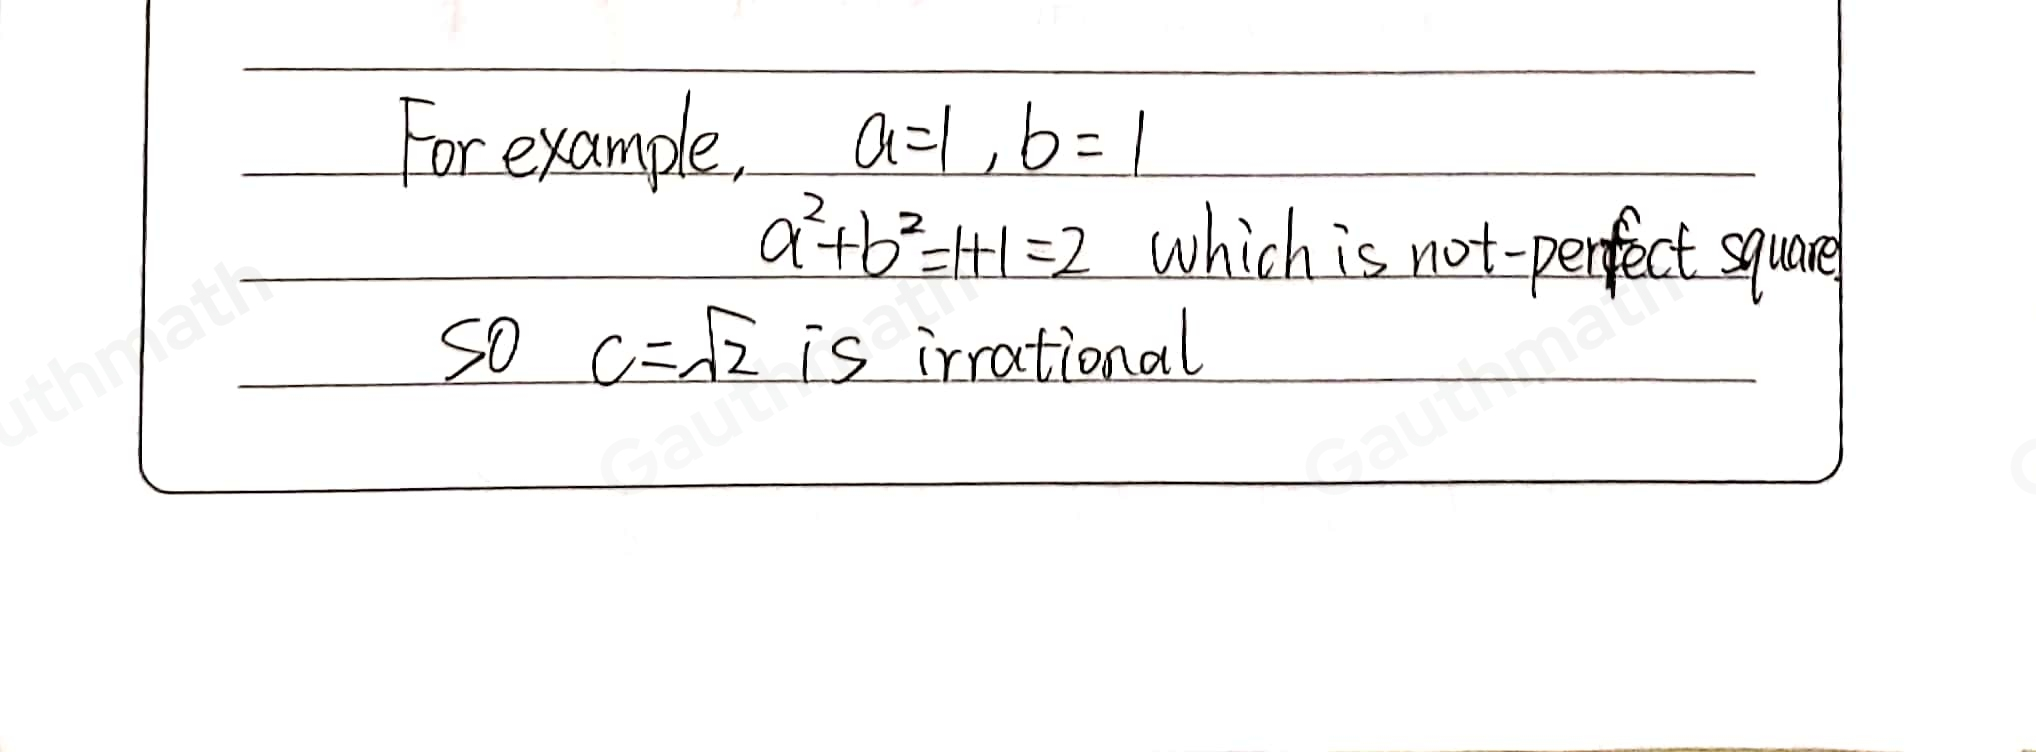 For example, a=1, b=1
a²+b²=1+1=2 which is not-perfect square
so c=√2 is irrational
uthmath
Gauthmath
Gauthmath